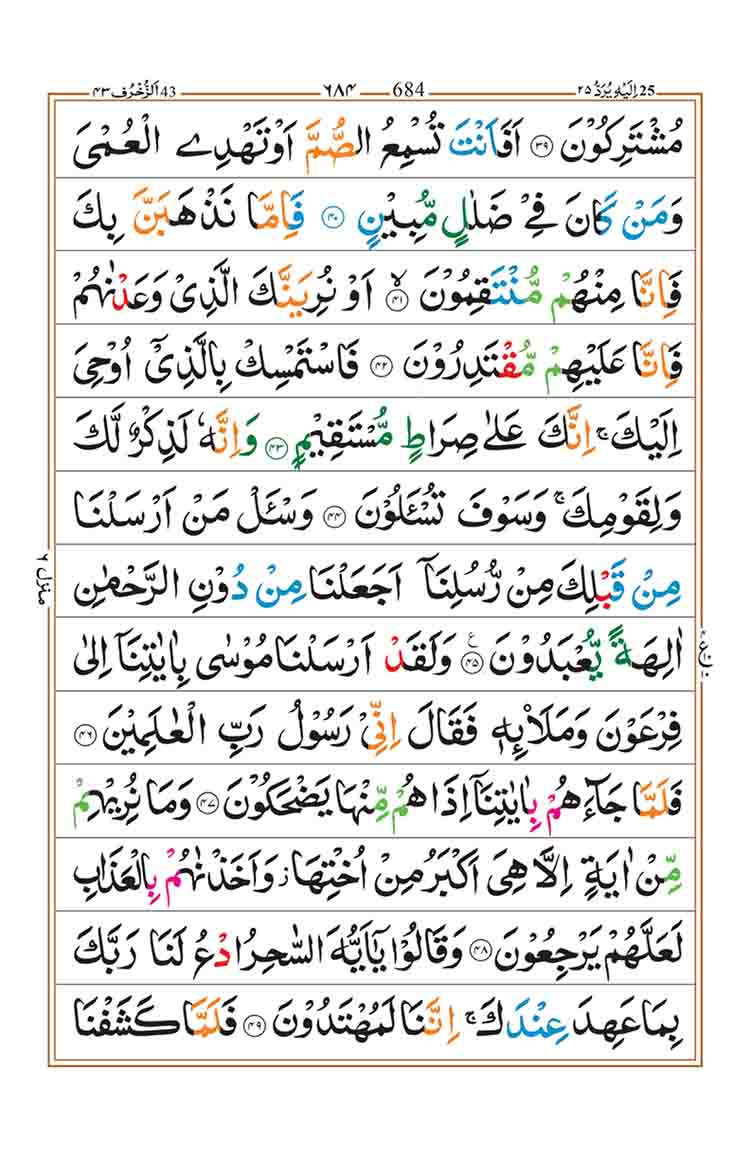 25 اِلَيْهِ يُرَدُّ ٢٥ 684 ٦٨٤ 43 اَلزُّخْرُف ٤٣
مُشْتَرِكُوْنَ ﴿٣٩﴾ اَفَاَنْتَ تُسْمِعُ الصُّمَّ اَوْ تَهْدِے الْعُمْیَ
وَمَنْ كَانَ فِیْ ضَلٰلٍ مُّبِیْنٍ ﴿٤٠﴾ فَاِمَّا نَذْهَبَنَّ بِكَ
فَاِنَّا مِنْهُمْ مُّنْتَقِمُوْنَ ﴿٤١﴾ۙ اَوْ نُرِیَنَّكَ الَّذِیْ وَعَدْنٰهُمْ
فَاِنَّا عَلَیْهِمْ مُّقْتَدِرُوْنَ ﴿٤٢﴾ فَاسْتَمْسِكْ بِالَّذِیْۤ اُوْحِیَ
اِلَیْكَ ۚ اِنَّكَ عَلٰی صِرَاطٍ مُّسْتَقِیْمٍ ﴿٤٣﴾ وَاِنَّهٗ لَذِكْرٌ لَّكَ
وَلِقَوْمِكَ ۚ وَسَوْفَ تُسْـَٔلُوْنَ ﴿٤٤﴾ وَسْـَٔلْ مَنْ اَرْسَلْنَا
مِنْ قَبْلِكَ مِنْ رُّسُلِنَاۤ اَجَعَلْنَا مِنْ دُوْنِ الرَّحْمٰنِ
اٰلِهَةً یُّعْبَدُوْنَ ﴿٤٥﴾ ع وَلَقَدْ اَرْسَلْنَا مُوْسٰی بِاٰیٰتِنَاۤ اِلٰی
فِرْعَوْنَ وَمَلَا۟ئِهٖ فَقَالَ اِنِّیْ رَسُوْلُ رَبِّ الْعٰلَمِیْنَ ﴿٤٦﴾
فَلَمَّا جَآءَهُمْ بِاٰیٰتِنَاۤ اِذَا هُمْ مِّنْهَا یَضْحَكُوْنَ ﴿٤٧﴾ وَمَا نُرِیْهِمْ
مِّنْ اٰیَةٍ اِلَّا هِیَ اَكْبَرُ مِنْ اُخْتِهَا ؗ وَاَخَذْنٰهُمْ بِالْعَذَابِ
لَعَلَّهُمْ یَرْجِعُوْنَ ﴿٤٨﴾ وَقَالُوْا یٰۤاَیُّهَ السّٰحِرُ ادْعُ لَنَا رَبَّكَ
بِمَا عَهِدَ عِنْدَكَ ۚ اِنَّنَا لَمُهْتَدُوْنَ ﴿٤٩﴾ فَلَمَّا كَشَفْنَا
منزل ٦